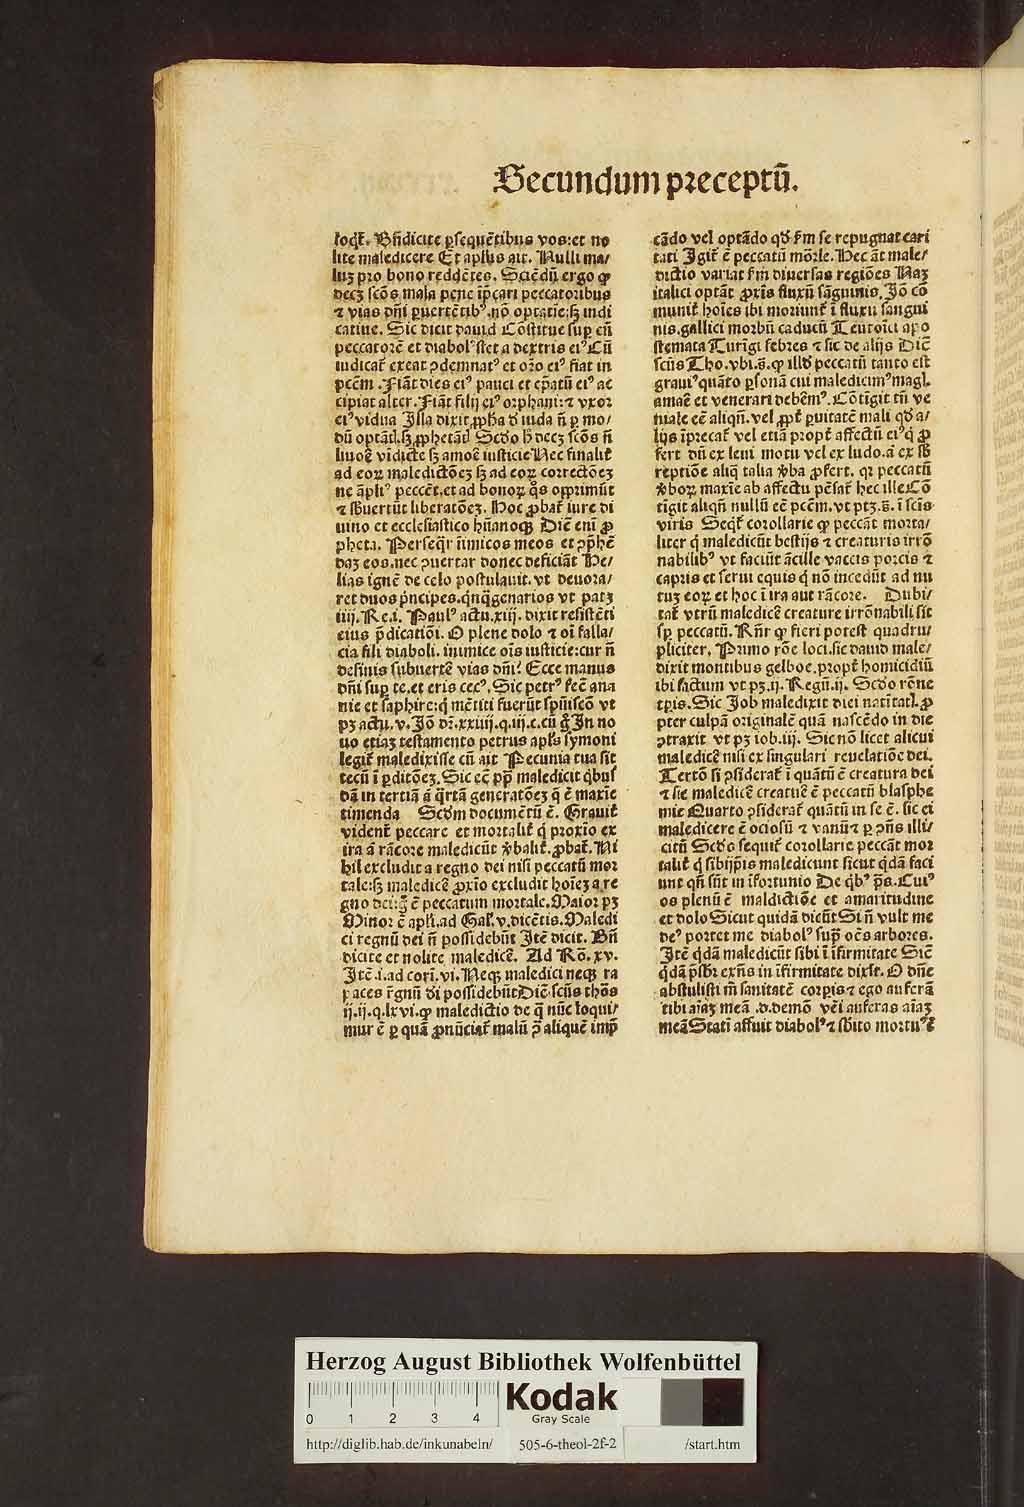 Secundum preceptū.
loqť. Bñdicite ꝑsequētibus vos:et no
lite maledicere Et apľus ait. Nulli ma/
luʒ pro bono reddētes. Sciēdū ergo ꝙ
decʒ scōs mala pene īpcari peccatoribus
⁊ vias dñi ꝑuertētibꝰ.nō optatie:sʒ indi
catiue. Sic dicit dauid Cōstitue suꝑ eū
peccatorē et diabolꝰ stet a dextris eiꝰ Cū
iudicať exeat ꝯdemnatꝰ et oro eiꝰ fiat in
pctm̄ .Fiāt dies eiꝰ pauci et ep̄atū eiꝰ ac
cipiat alter. Fiāt filij eiꝰ orphani:⁊ vxor
eiꝰ vidua Ista dixit ꝓph̄a ď iuda ñ ꝑ mo/
dū optātꝭ.sʒ ꝓphetātꝭ Scďo ħ decʒ scōs ñ
liuoē vīdicte sʒ amoē iusticie Nec finaliť
ad eoꝝ maledictōeʒ sʒ ad eoꝝ correctōeʒ
ne āpliꝰ peccēt.et ad bonoꝝ q̊s opprimūt
⁊ sb̄uertūt liberatōeʒ. Hoc ꝓbať iure di
uino et ecclesiastico hūanoqʒ Diċ eni ꝓ
pheta. Perseqūr īimicos meos et ꝯp̄hē
daʒ eos.nec ꝯuertar donec deficiāt He/
lias ignē de celo postulauit.vt deuora/
ret duos p̄ncipes.q̄nq̄genarios vt patʒ
iiij. Re.i. Paulꝰ actu.xiij. dixit resistēti
eius p̄dicatiōi. O plene dolo ⁊ oī falla/
cia fili diaboli. inimice oīs iusticie:cur ñ
desinis subuertē vias dñi? Ecce manus
dñi suꝑ te.et eris cecꝰ. Sic petrꝰ fecē ana
nie et saphire:q̇ mētiti fuerūt spūiscō vt
pʒ actu.v. Jō dr̄.xxiiij.q.iij.c.cū ḡ In no
uo etiaʒ testamento petrus apľs symoni
legiť maledixisse cū ait Pecunia tua sit
tecū ī ꝑditōeʒ. Sic ecē pp̄ maledicit q̇bus
dā in tertiā ⁊ q̄rtā generatōeʒ q̄ ē maxīe
timenda Scďm documētū ē. Grauiť
vidēnt peccare et mortaliť q̇ proxīo ex
ira ⁊ rācore maledicūt v̄baliť. ꝓbať. Ni
hil excludit a regno dei nisi peccatū mor
tale:sʒ maledicē ꝓxīo excludit hoīeʒ a re
gno dei:g̊ ē peccatum mortale. Maior pʒ
Minor ē apľi ad Gaľ.v.dicētis. Maledi
ci regnū dei ñ possidebūt Itē dicit. Bñ
dicite et nolite maledicē. Ad Ro.xv.
Itē.i.ad cori.vi. Neqʒ maledici neqʒ ra
paces r̄gnū ďi possidebūt Diċ scūs thōs
ij.ij.q.lxvi.ꝙ maledictio de q̄ nūc loqui/
mur ē ꝑ quā ꝓnūciať malū ꝯ̄ aliquē imꝑ
cādo vel optādo qď fm̄ se repugnat cari
tati Igiť ē peccatū mōrle. Hec āt male/
dictio variat fm̄ diuersas regiōes Naʒ
italici optāt ꝓxīs fluxū sāguinis. Jō cō
muniť hoīes ibi moriunť ī fluxu sangui
nis.gallici morbū caducū Teutoīci apo
stemata Turīgi febres ⁊ sic de alijs Diċ
scūs Tho.vbi.s̄.ꝙ illď peccatū tanto est
grauiꝰ quāto ꝑsonā cui maledicimꝰ magꝭ.
amaē et venerari debēmꝰ. Cōtigit tū ve
niale eē aliqñ.vel ꝓpť ꝑuitatē mali qď a/
lijs īprecať vel etiā propť affectū eiꝰ q̇ ꝓ
fert dū ex leui motu vel ex ludo.⁊ ex sb̄
reptiōe aliq̇ talia v̄ba ꝓfert. qr peccatū
v̄boꝝ maxīe ab affectu pēsať hec ille Cō
tigit aliqñ nullū eē pctm̄.vt ptʒ.s̄. ī scis
viris Seqť corollarie ꝙ peccāt morta/
liter q̇ maledicūt bestijs ⁊ creaturis irrō
nabilibꝰ vt faciūt ācille vaccis porcis ⁊
capris et serui equis q̇ nō incedūt ad nu
tuʒ eoꝝ et hoc ī ira aut rācore. Dubi/
tať vtrū maledicē creature irrōnabili sit
sꝑ peccatū. Rñr ꝙ fieri potest quadru/
pliciter. Primo rōe loci.sic dauid male/
dixit montibus gelboe.propť homicidiū
ibi factum vt pʒ.ij. Regū.ij. Scďo rōne
tꝑis. Sic Job maledixit diei natītatꝭ. ꝓ
pter culpā originalē quā nascēdo in die
ꝯtraxit vt pʒ iob.iij. Sic nō licet alicui
maledicē nisi ex singulari reuelatiōe dei.
Tertō si ꝯsiderať ī quātū ē creatura dei
⁊ sic maledicē creatuē ē peccatū blasphe
mie Quarto ꝯsiderať quātū in se ē. sic ei
maledicere ē ociosū ⁊ vanū ⁊ ꝑ ꝯñs illi/
citū Scďo sequiť corollarie peccāt mor
taliť q̇ sibijp̄is malediciunt sicut q̇dā faci
unt qñ sūt in īfortunio De q̇bꝰ p̄s. Cuiꝰ
os plenū ē maldictiōe et amaritudine
et dolo Sicut quidā dicūt Si ñ vult me
deꝰ portet me diabolꝰ supᷣ oēs arbores.
Itē q̇dā maledicūt sibi ī īfirmitate Siċ
q̇dā p̄sbr̄ exñs in īfirmitate dixit. O dñe
abstulisti m̄ sanitatē corꝑis ⁊ ego auferā
tibi aīaʒ meā .d.demō vēi auferas aīaʒ
meā Statī affuit diabolꝰ ⁊ sb̄ito mortuꝰ ē
Herzog August Bibliothek Wolfenbüttel
0 1 2 3 4
Kodak
Gray Scale
http://diglib.hab.de/inkunabeln/ 505-6-theol-2f-2 /start.htm